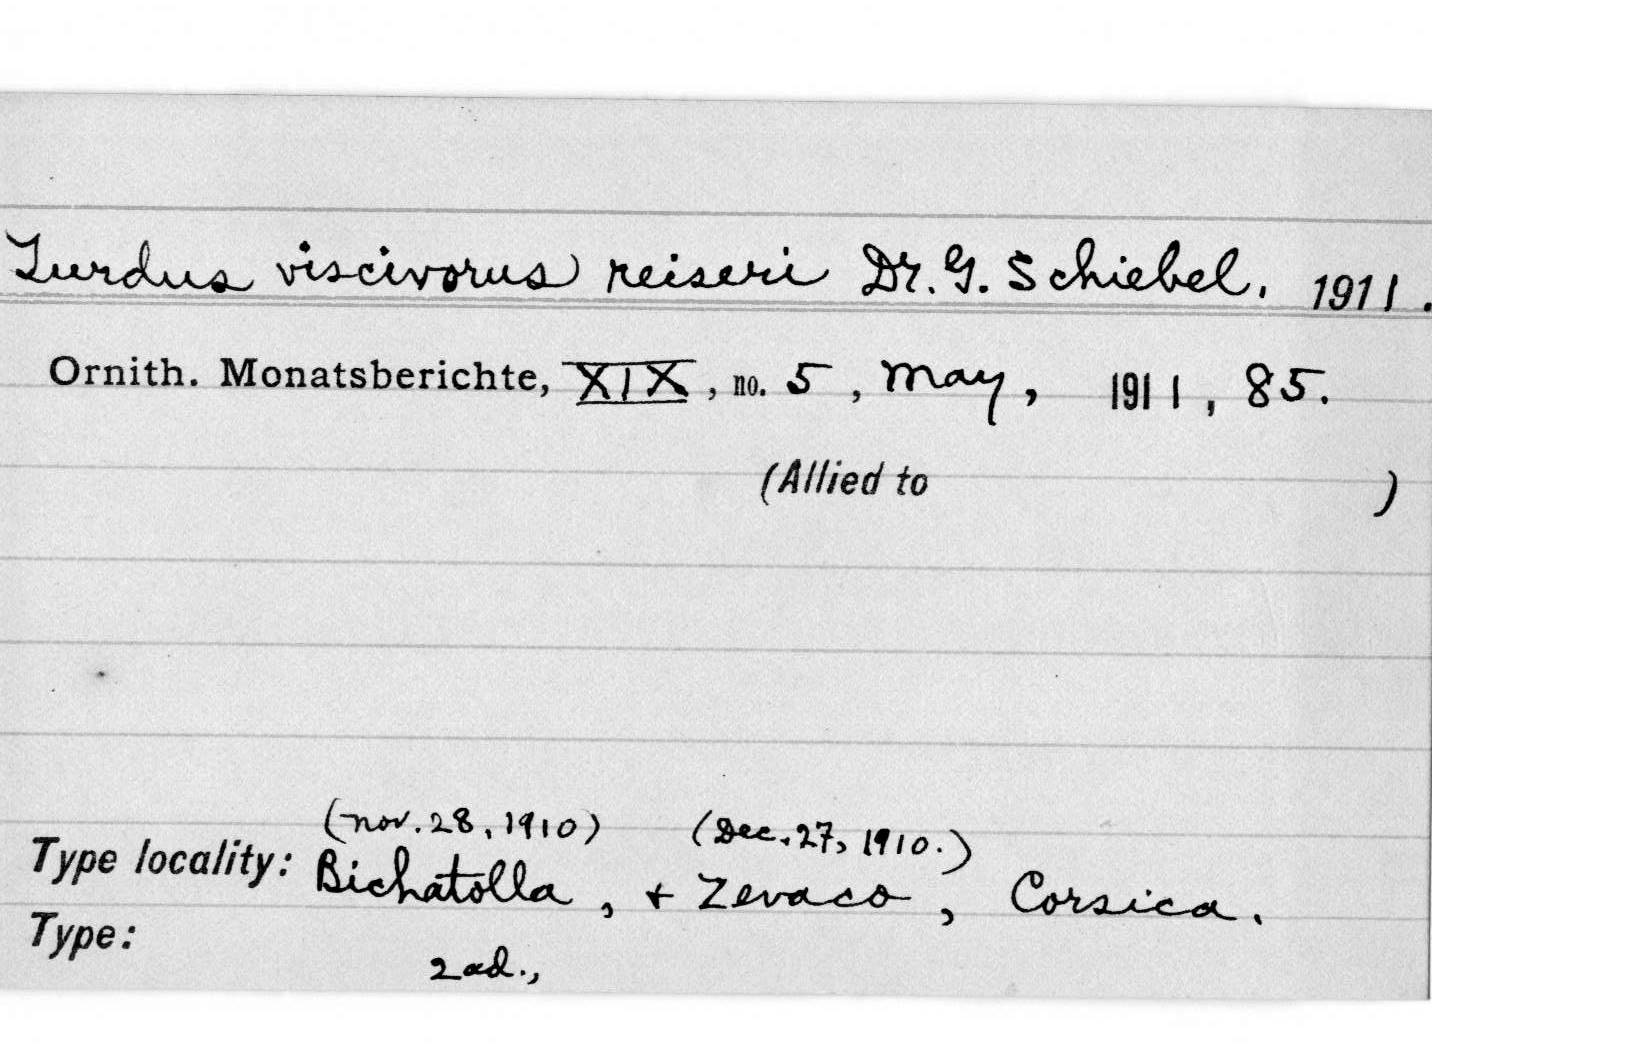 Turdus viscivorus reiseri Dr. G. Schiebel. 1911.
Ornith. Monatsberichte, XIX, no. 5, May, 1911, 85.
(Allied to )
(Nov. 28, 1910) (Dec. 27, 1910.)
Type locality: Bichatolla, + Zevaco, Corsica.
Type:
2 ad.,